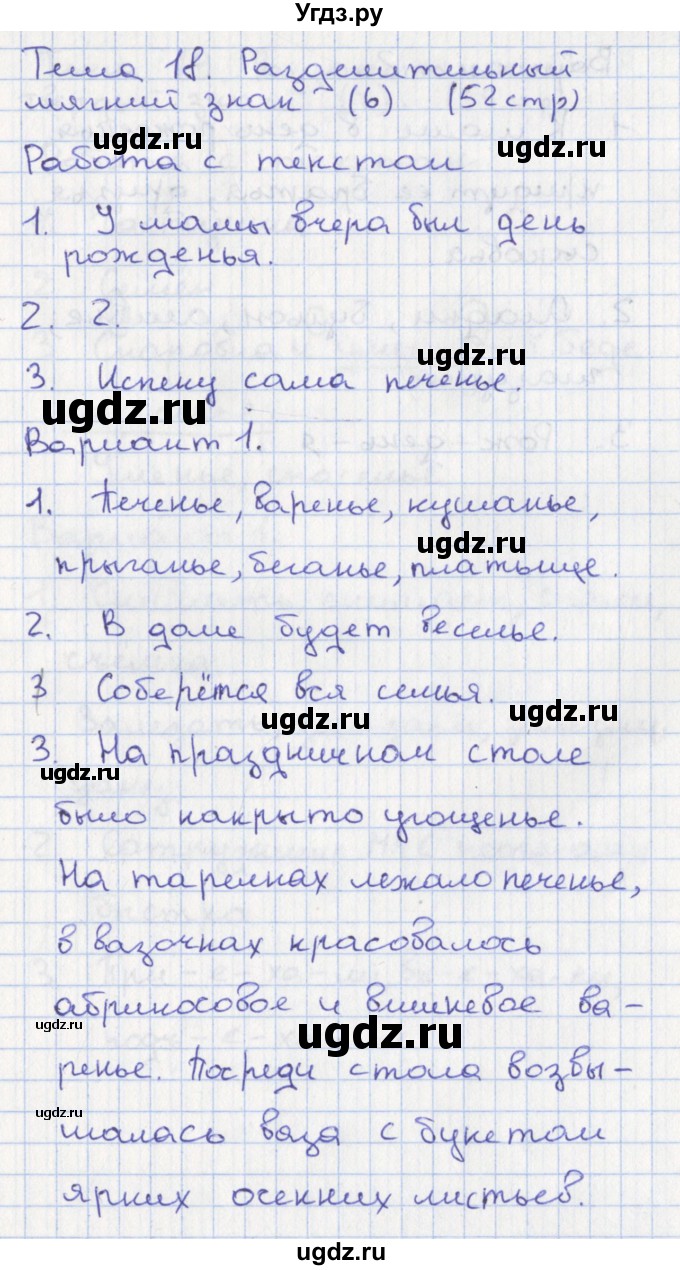 Угдз.ру
Тема 18. Разделительный
мягкий знак (ь) (52 стр)
ugdz.ru
Работа с текстом
ugdz.ru
1. У мамы вчера был день
рожденья.
2. 2.
ugdz.ru
3. Испеку сама печенье.
ugdz.ru
Вариант 1.
1. Печенье, варенье, кушанье,
ugdz.ru
прыганье, беганье, платьице.
2. В доме будет веселье.
3 Соберётся вся семья.
ugdz.ru ugdz.ru
3. На праздничном столе
ugdz.ru
было накрыто угощенье.
На тарелках лежало печенье,
в вазочках красовалось
абрикосовое и вишневое ва-
ugdz.ru ugdz.ru
ренье. Посреди стола возвы-
ugdz.ru
шалась ваза с букетом
ярких осенних листьев.
ugdz.ru